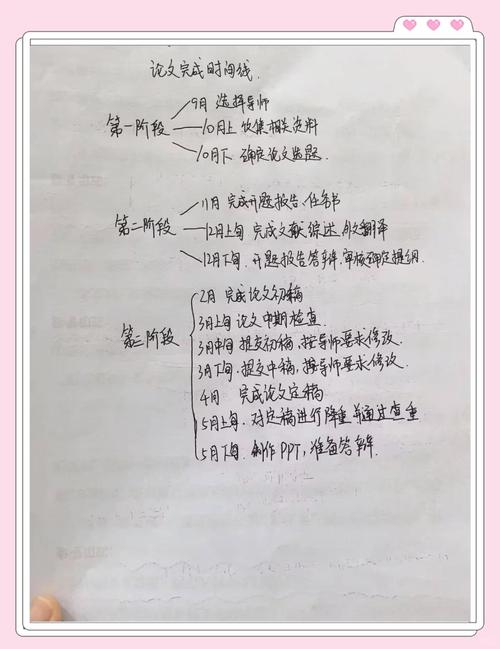 论文完成时间线.
第一阶段
9月 选择导师
10月上 收集相关资料
10月下 确定论文选题.
第二阶段
11月 完成开题报告、任务书
12月上旬 完成文献综述、外文翻译
12月下旬. 开题报告答辩, 审核确定提纲.
第三阶段
2月 完成论文初稿
3月上旬 论文中期检查
3月中旬 提交初稿, 按导师要求修改.
3月下旬. 提交中稿, 按导师要求修改.
4月 完成论文定稿
5月上旬. 对定稿进行降重并通过查重
5月下旬. 制作PPT, 准备答辩.